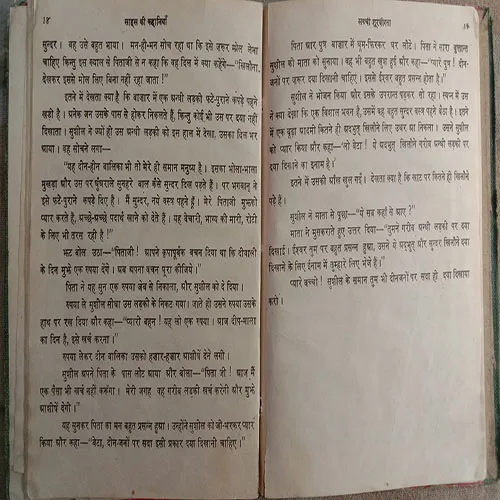 १४ साहस की कहानियाँ
सुन्दर । वह उसे बहुत भाया । मन-ही-मन सोच रहा था कि इसे ज़रूर मोल लेना
चाहिए किन्तु इस ख़्याल से पिताजी से न कहा कि वह दिल में क्या कहेंगे—"खिलौना
देखकर इससे मोल लिए बिना नहीं रहा जाता !"
इतने में देखता क्या है कि बाज़ार में एक अन्धी लड़की फटे-पुराने कपड़े पहने
खड़ी है । अनेक जन उसके पास से होकर निकलते हैं, किन्तु कोई भी उस पर दया नहीं
दिखाता । सुशील ने ज्यों ही उस अन्धी लड़की को इस हाल में देखा, उसका दिल भर
आया । वह सोचने लगा—
"यह दीन-हीन बालिका भी तो मेरे ही समान मनुष्य है । इसका भोला-भाला
मुखड़ा और उस पर घुँघराले सुनहरे बाल कैसे सुन्दर दिख पड़ते हैं । पर भगवान् ने
इसे फटे-पुराने कपड़े दिए हैं । मैं सुन्दर, नये वस्त्र पहने हूँ । मेरे पिताजी मुझको
प्यार करते हैं, अच्छे-अच्छे पदार्थ खाने को देते हैं । यह बेचारी, भाग्य की मारी, रोटी
के लिए भी तरस रही है !"
झट बोल उठा—"पिताजी ! आपने कृपापूर्वक वचन दिया था कि दीवाली
के दिन मुझे एक रुपया देंगे । अब अपना वचन पूरा कीजिये ।"
पिता ने यह सुन एक रुपया जेब से निकाला, और सुशील को दे दिया ।
रुपया ले सुशील सीधा उस लड़की के निकट गया । जाते ही उसने रुपया उसके
हाथ पर रख दिया और कहा—"प्यारी बहन ! यह लो एक रुपया । आज दीप-माला
का दिन है, इसे खर्च करना ।"
रुपया लेकर दीन बालिका उसको हज़ार-हज़ार आशीषें देने लगी ।
सुशील अपने पिता के पास लौट आया और बोला—"पिता जी ! आज मैं
एक पैसा भी खर्च नहीं करूँगा । मेरी जगह वह गरीब लड़की खर्च करेगी और मुझे
आशीषें देगी ।"
यह सुनकर पिता का मन बहुत प्रसन्न हुआ । उन्होंने सुशील को जी-भरकर प्यार
किया और कहा—"बेटा, दीन-जनों पर सदा इसी प्रकार दया दिखानी चाहिए ।"
सच्ची शूरवीरता
पिता और पुत्र बाज़ार में घूम-फिरकर घर लौटे । पिता ने सारा वृत्तान्त
सुशील की माता को सुनाया । वह भी बहुत खुश हुई और कहा—"प्यारे पुत्र ! दीन-
जनों पर ज़रूर दया दिखानी चाहिए । इससे ईश्वर बहुत प्रसन्न होता है ।"
सुशील ने भोजन किया और इसके उपरान्त पड़कर सो रहा । स्वप्न में उस
ने क्या देखा कि एक विशाल भवन है, उसमें वह बहुत सुन्दर वस्त्र पहने बैठा है । इतने
में एक बूढ़ा आदमी कितने ही अद्भुत खिलौने लिए उधर आ निकला । उसने सुशील
को प्यार किया और कहा—"लो बेटा ! ये अद्भुत खिलौने गरीब अन्धी लड़की पर
दया दिखाने का इनाम है ।"
इतने में उसकी आँख खुल गई । देखता क्या है कि खाट पर कितने ही खिलौने
पड़े हैं ।
सुशील ने माता से पूछा—"ये सब कहाँ से आए ?"
माता ने मुसकराते हुए उत्तर दिया—"तुमने गरीब अन्धी लड़की पर दया
दिखाई । ईश्वर तुम पर बहुत प्रसन्न हुआ, उसने ये अद्भुत और सुन्दर खिलौने दया
दिखाने के लिए ईनाम में तुम्हारे लिए भेजे हैं ।"
प्यारे बच्चो ! सुशील के समान तुम भी दीनजनों पर सदा ही दया दिखाया
करो ।